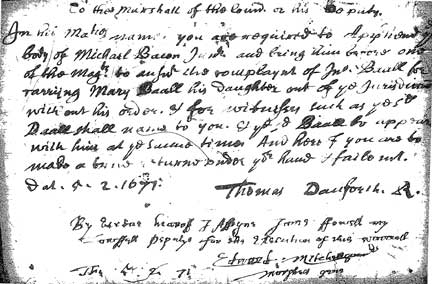 To the Marshall of the Court or his Deputy.
In his Maties name you are required to Apprehend ye
body of Michael Bacon Junr. and bring him before one
of the Magts. to answr the complaynt of Jno. Baall for
carrying Mary Baall his Daughter out of ye Jurisdiction
with out his order. & for witnesses such as ye sd
Baall shall name to you. & yt ye sd Baall be appear
with him at ye same time. And hereof you are to
make a true returne under yor hand & faile not.
Dat. 5. 2. 1671.
Thomas Danforth. R.
By vertue hereof I Assigne James ffowell my
Deputye for the Execution of this warrant
Edward Mitchellson
Marshall Genr